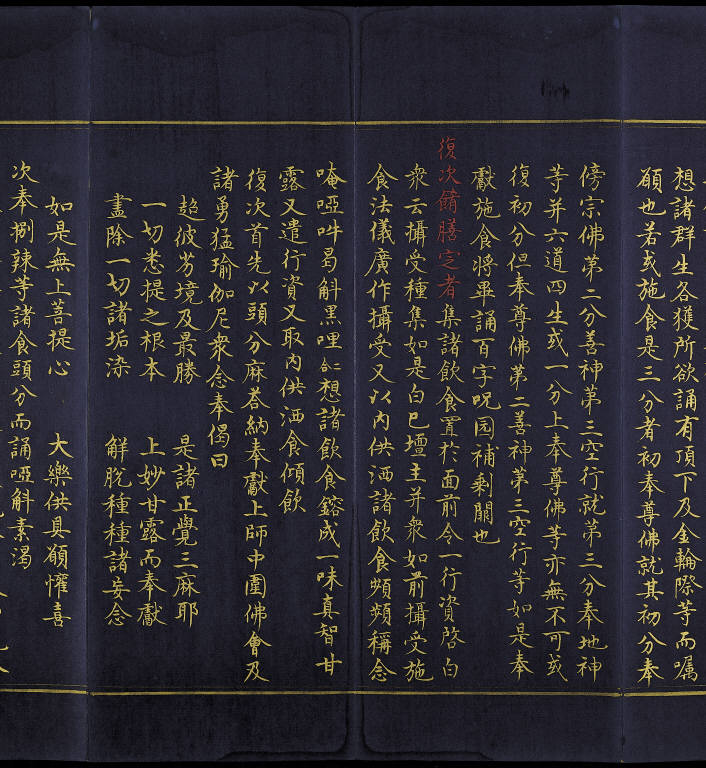 想諸群生各獲所欲誦有頂下及金輪際等而囑
願也若或施食是三分者初奉尊佛就其初分奉
傍宗佛第二分善神第三空行就第三分奉地神
等并六道四生或一分上奉尊佛等亦無不可或
復初分但奉尊佛第二善神第三空行等如是奉
獻施食將畢誦百字呪圓補剩闕也
復次餚膳定者集諸飲食置於面前令一行資啓白
衆云攝受種集如是白已壇主并衆如前攝受施
食法儀廣作攝受又以內供洒諸飲食頻頻稱念
唵啞吽曷斛黑哩 想諸飲食鎔成一味真智甘
露又遣行資又取內供洒食傾飲
復次首先以頭分麻荅納奉獻上師中圍佛會及
諸勇猛瑜伽尼衆念奉偈曰
超彼芳境及最勝 是諸正覺三麻耶
一切悉提之根本 上妙甘露而奉獻
盡除一切諸垢染 解脫種種諸妄念
如是無上菩提心 大樂供具願懽喜
次奉捌辣等諸食頭分而誦啞斛素渴